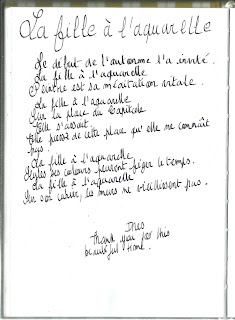 La fille à l'aquarelle
Le début de l'automne l'a invité.
La fille à l'aquarelle
Peindre est sa méditation vitale.
La fille à l'aquarelle
Sur la place du Capitole
Elle s'assoit
Elle pose de cette place qu'elle ne connaît
pas.
La fille à l'aquarelle
ses couleurs peuvent figer le temps.
La fille à l'aquarelle
son cahier, les murs ne vieillissent pas.
Thank you for this
beautiful home.